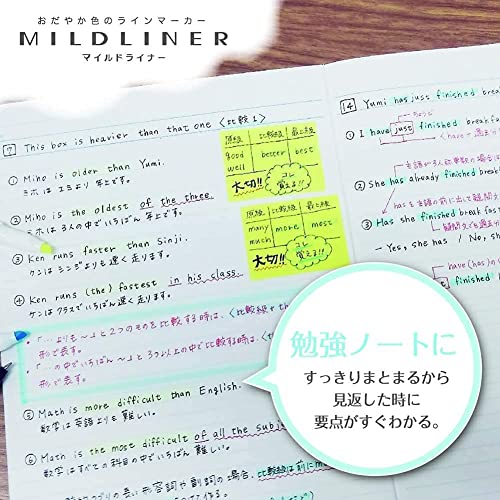 おだやか色のラインマーカー
MILDLINER
マイルドライナー
7 This box is heavier than that one 〈比較1〉
① Miho is older than Yumi.
ミホは ユミより 年上です。
② Miho is the oldest of the three.
ミホは 3人の中でいちばん 年上です。
③ Ken runs faster than Sinji.
ケンは シンジよりも 速く 走ります。
④ Ken runs (the) fastest in his class.
ケンは クラスで いちばん 速く 走ります。
・「…よりも〜」と2つのものを比較する時は、〈比較級+th
形で表す。
・「…の中でいちばん〜」と3つ以上の中で比較する時は、〈the
形で表す。
⑤ Math is more difficult than English.
数学は 英語よりも 難しい。
⑥ Math is the most difficult of all the subje
数学は すべての 科目の中で いちばん 難しい。
の長い形容詞や副詞の場合、比較級は前にmo
原級 比較級 最上級
good
well better best
大切!! コレ覚える!!
原級 比較級 最上級
many
much more most
大切!! コレ覚える!!
14 Yumi has just finished break
① I have just finished breakfa
② She has already finished break
③ Has she finished break
- Yes, she has / No, she
have (has) の
勉強ノートに
すっきりまとまるから
見返した時に
要点がすぐわかる。